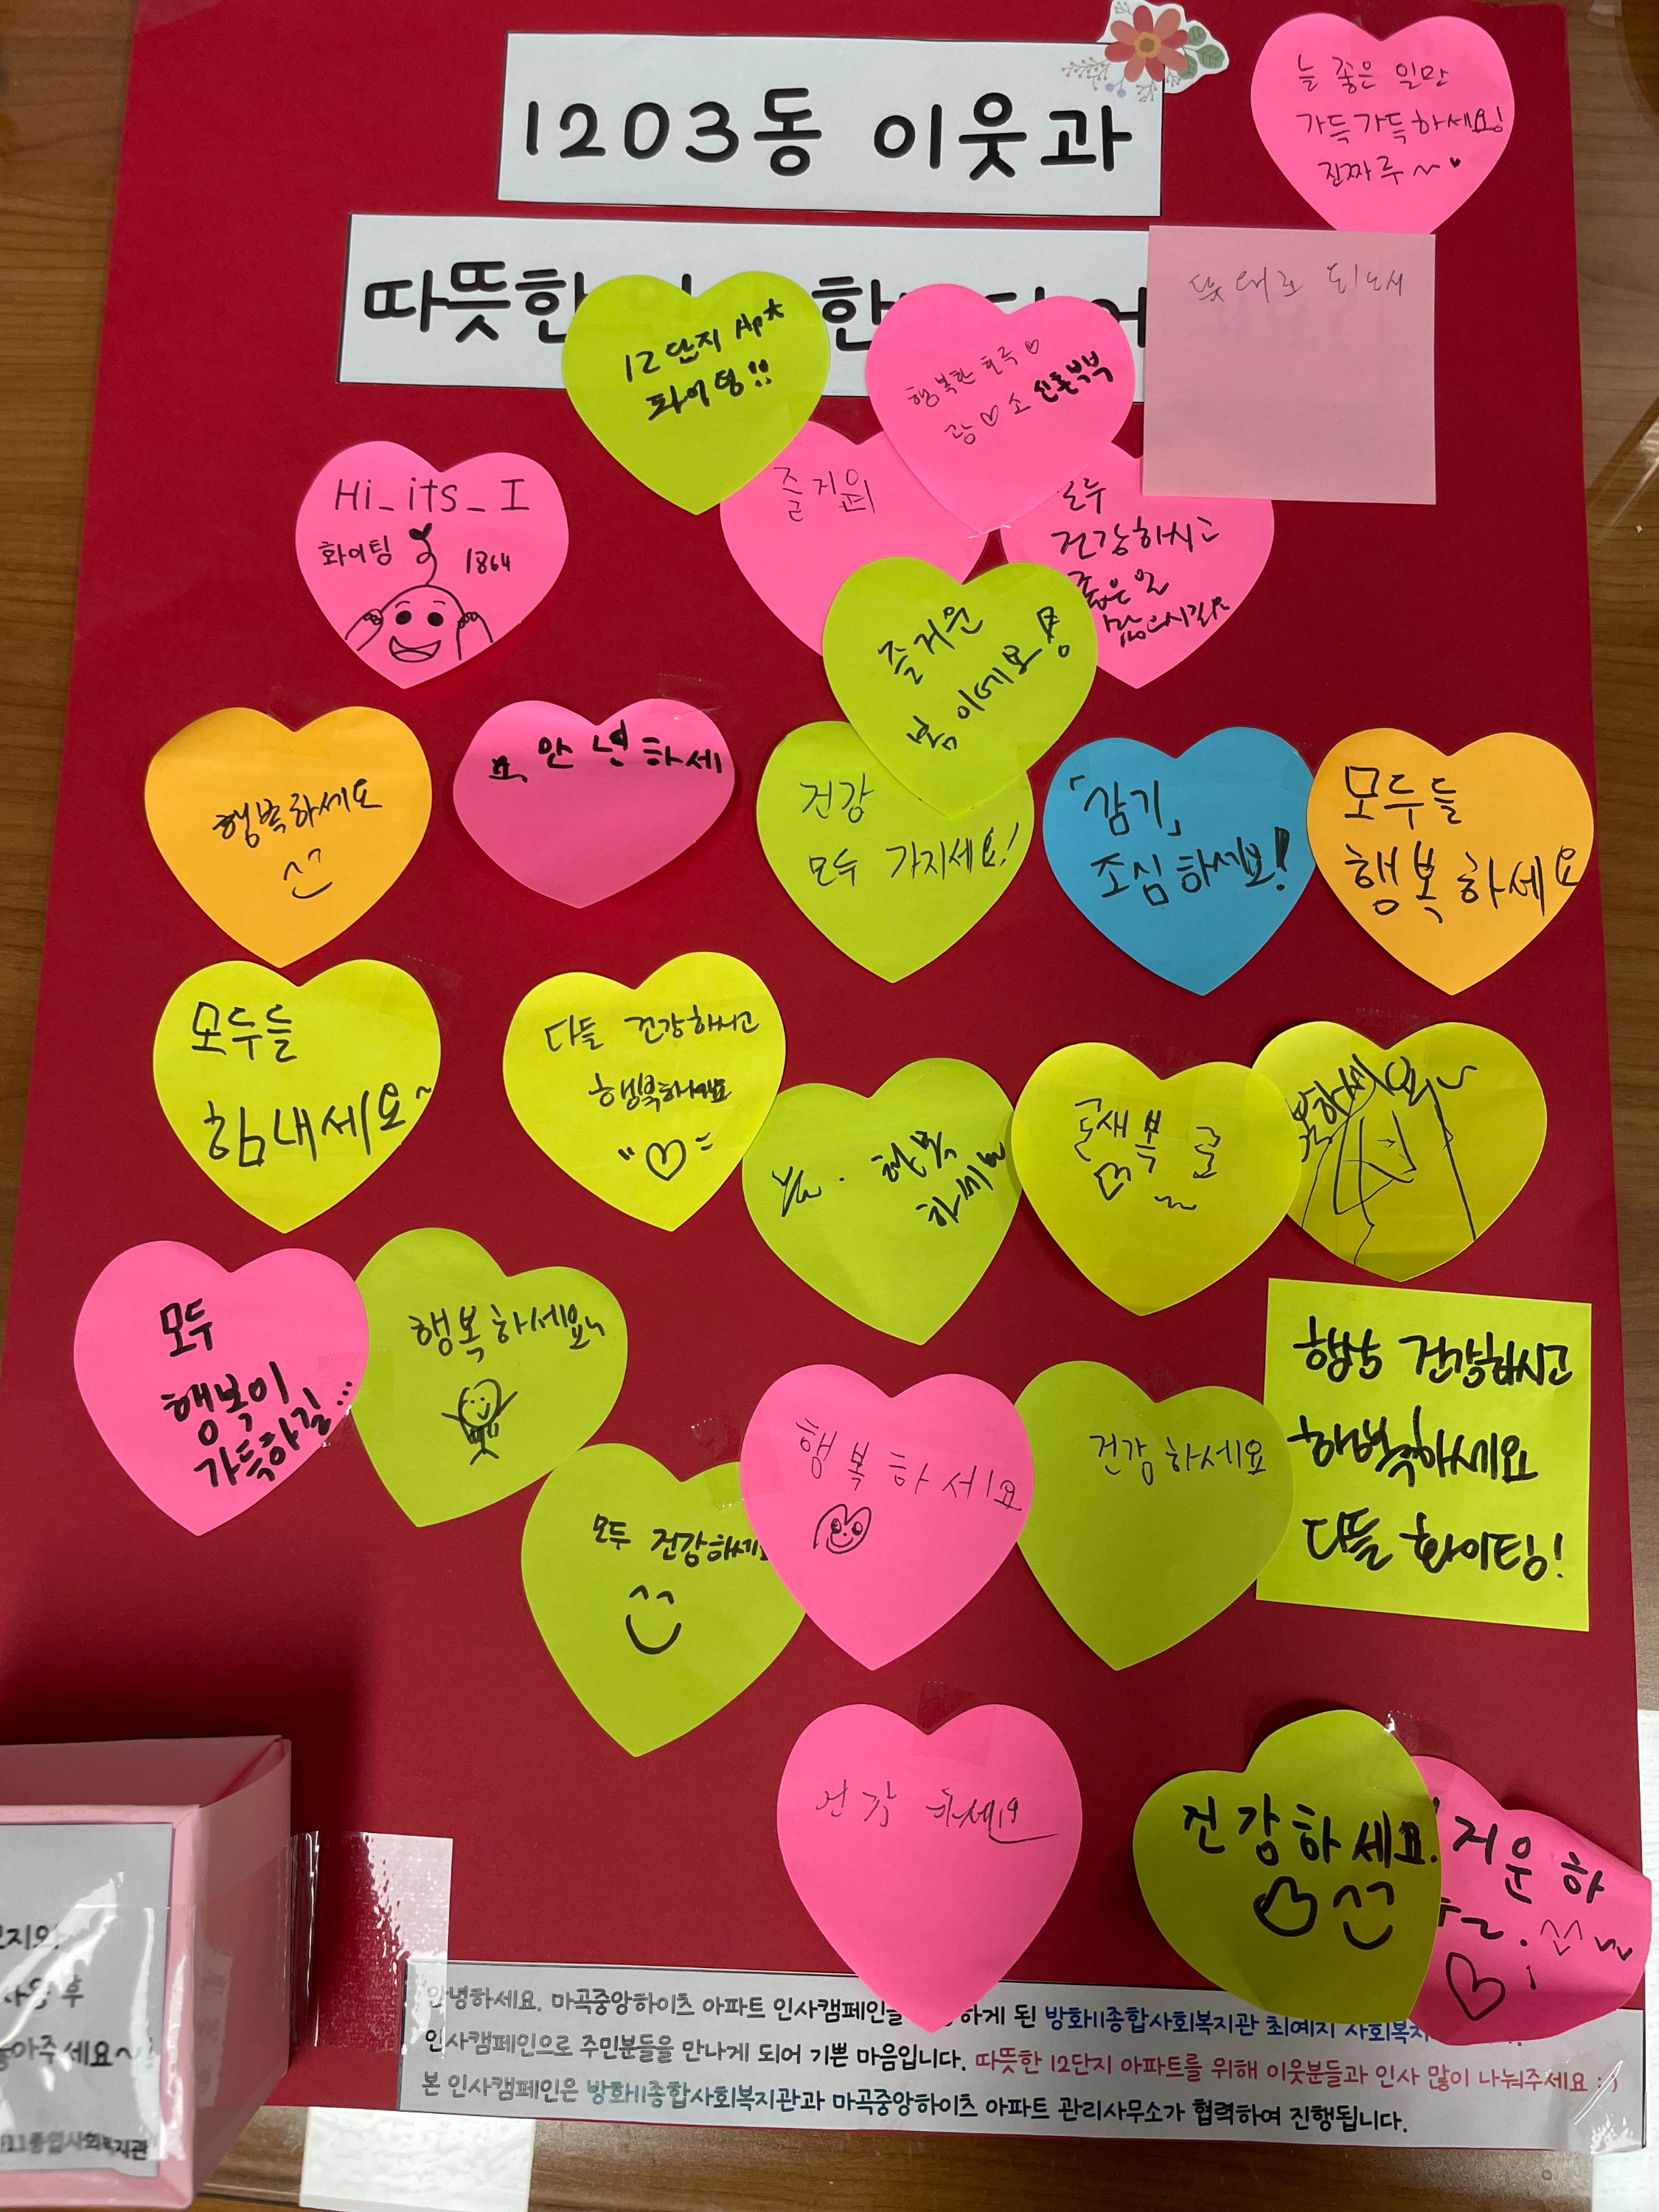 1203동 이웃과
늘 좋은 일만
가득가득하세요!
진짜루~
따뜻한
뜻대로
12단지 Apt
화이팅!!
행복한 하루♡
광♡소 신혼부부
Hi_its_I
화이팅 1864
즐거운
모두
건강하시고
좋은 일
즐거운
봄 이에요!
행복하세요
요, 안녕하세
건강
모두 가지세요!
「감기」
조심하세요!
모두들
행복하세요
모두들
힘내세요~
다들 건강하시고
행복하세요
행복
하세요
새복
모두
행복이
가득하길...
행복하세요
모두 건강하세요
행복하세요
건강하세요
항상 건강하시고
행복하세요
다들 화이팅!
건강하세요
건강하세요.
거운 하
안녕하세요. 마곡중앙하이츠 아파트 인사캠페인을 하게 된 방화11종합사회복지관 최예지 사회복지
인사캠페인으로 주민분들을 만나게 되어 기쁜 마음입니다. 따뜻한 12단지 아파트를 위해 이웃분들과 인사 많이 나눠주세요 : )
본 인사캠페인은 방화11종합사회복지관과 마곡중앙하이츠 아파트 관리사무소가 협력하여 진행됩니다.
후
아주세요~
11종합사회복지관